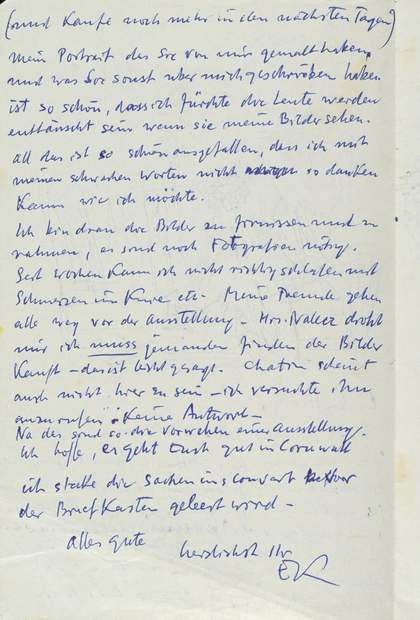 (und Kaufe noch mehr in den nächsten Tagen)
Mein Portrait das Sie von mir gemalt haben
und was Sie sonst über mich geschrieben haben
ist so schön, dass ich fürchte die Leute werden
enttäuscht sein wenn sie meine Bilder sehen.
all das ist so schön ausgefallen, dass ich mit
meinen schwachen worten nicht so danken
Kann wie ich möchte.
Ich bin dran die Bilder zu firnissen und zu
rahmen, es sind noch Fotografien nötig.
Seit wochen Kann ich nicht richtig schlafen mit
Schmerzen im Knie etc. Meine Freunde gehen
alle weg vor der ausstellung – Mrs. droht
mir ich muss jemanden finden der Bilder
Kauft – das ist leicht gesagt. Chatin scheint
auch nicht hier zu sein – ich versuchte ihn
anzurufen. Keine Antwort –
Na das sind so die vorwehen einer ausstellung.
Ich hoffe, es geht Euch gut in Cornwall
ich stecke die Sachen ins couvert bevor
der BriefKasten geleert wird –
alles gute herzlichst Ihr